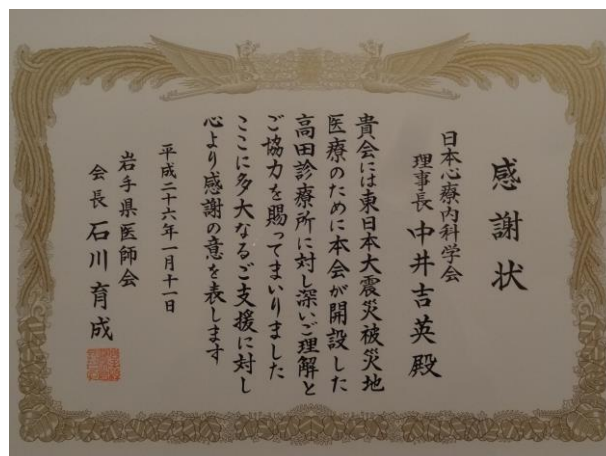 感謝状
日本心療内科学会
理事長 中井吉英 殿
貴会には東日本大震災被災地
医療のために本会が開設した
高田診療所に対し深いご理解と
ご協力を賜ってまいりました
ここに多大なるご支援に対し
心より感謝の意を表します
平成二十六年一月十一日
岩手県医師会
会長 石川育成